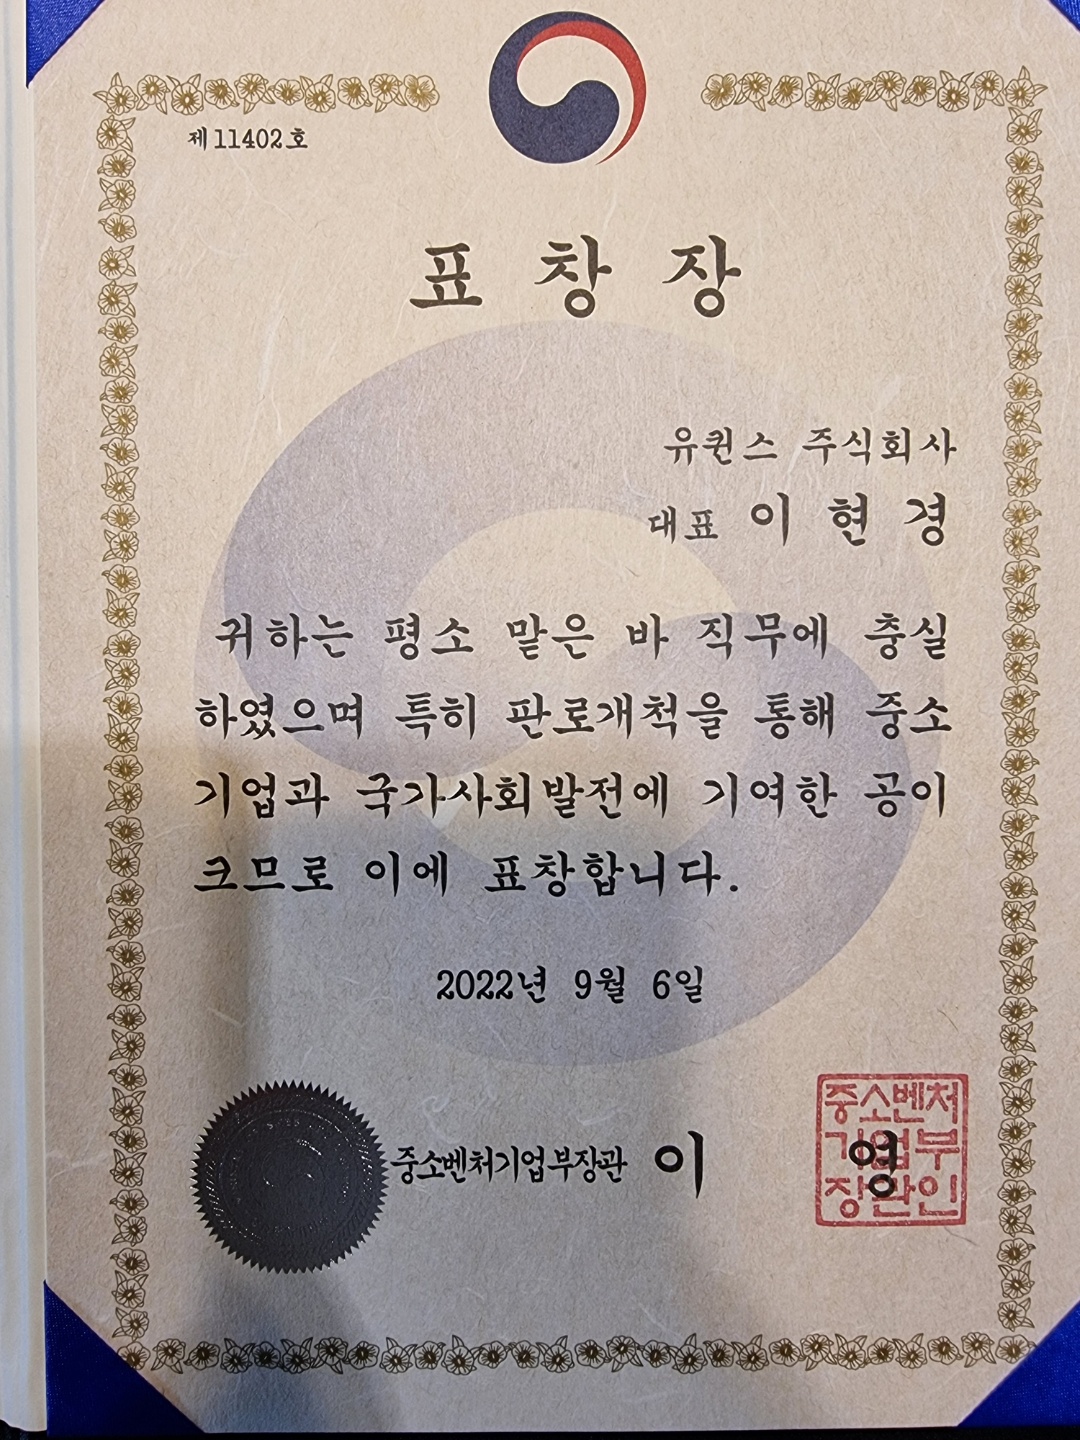 제11402호
표 창 장
유퀸스 주식회사
대표 이 현 경
귀하는 평소 맡은 바 직무에 충실
하였으며 특히 판로개척을 통해 중소
기업과 국가사회발전에 기여한 공이
크므로 이에 표창합니다.
2022년 9월 6일
중소벤처기업부장관 이 영
중소벤처
기업부
장관인